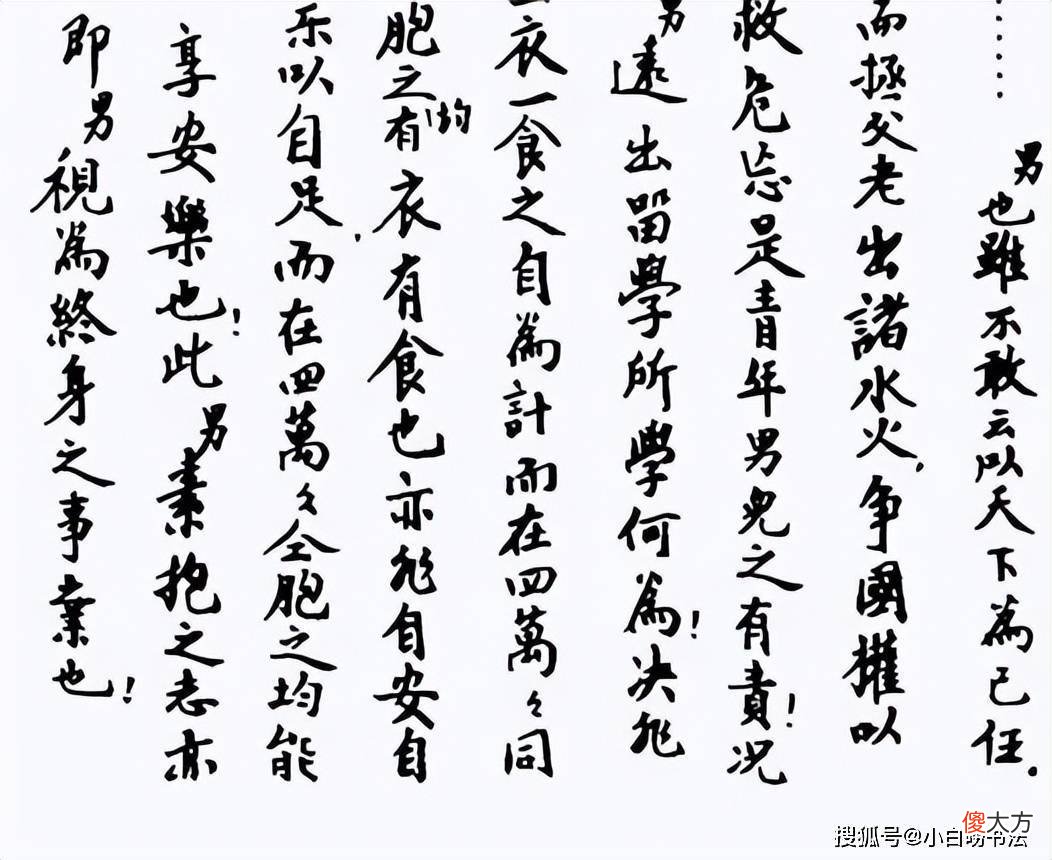 ……男也雖不敢云以天下為己任.
而拯父老出諸水火,争國權以
救危忘是青年男兒之有責!况
男遠出留學所學何為!决非
衣一食之自為計而在四萬々同
胞之均有衣有食也亦非自安自
乐以自足,而在四萬々仝胞之均能
享安樂也!此男素抱之志亦
即男視為終身之事業也!
傻大方
搜狐号@小白唠书法